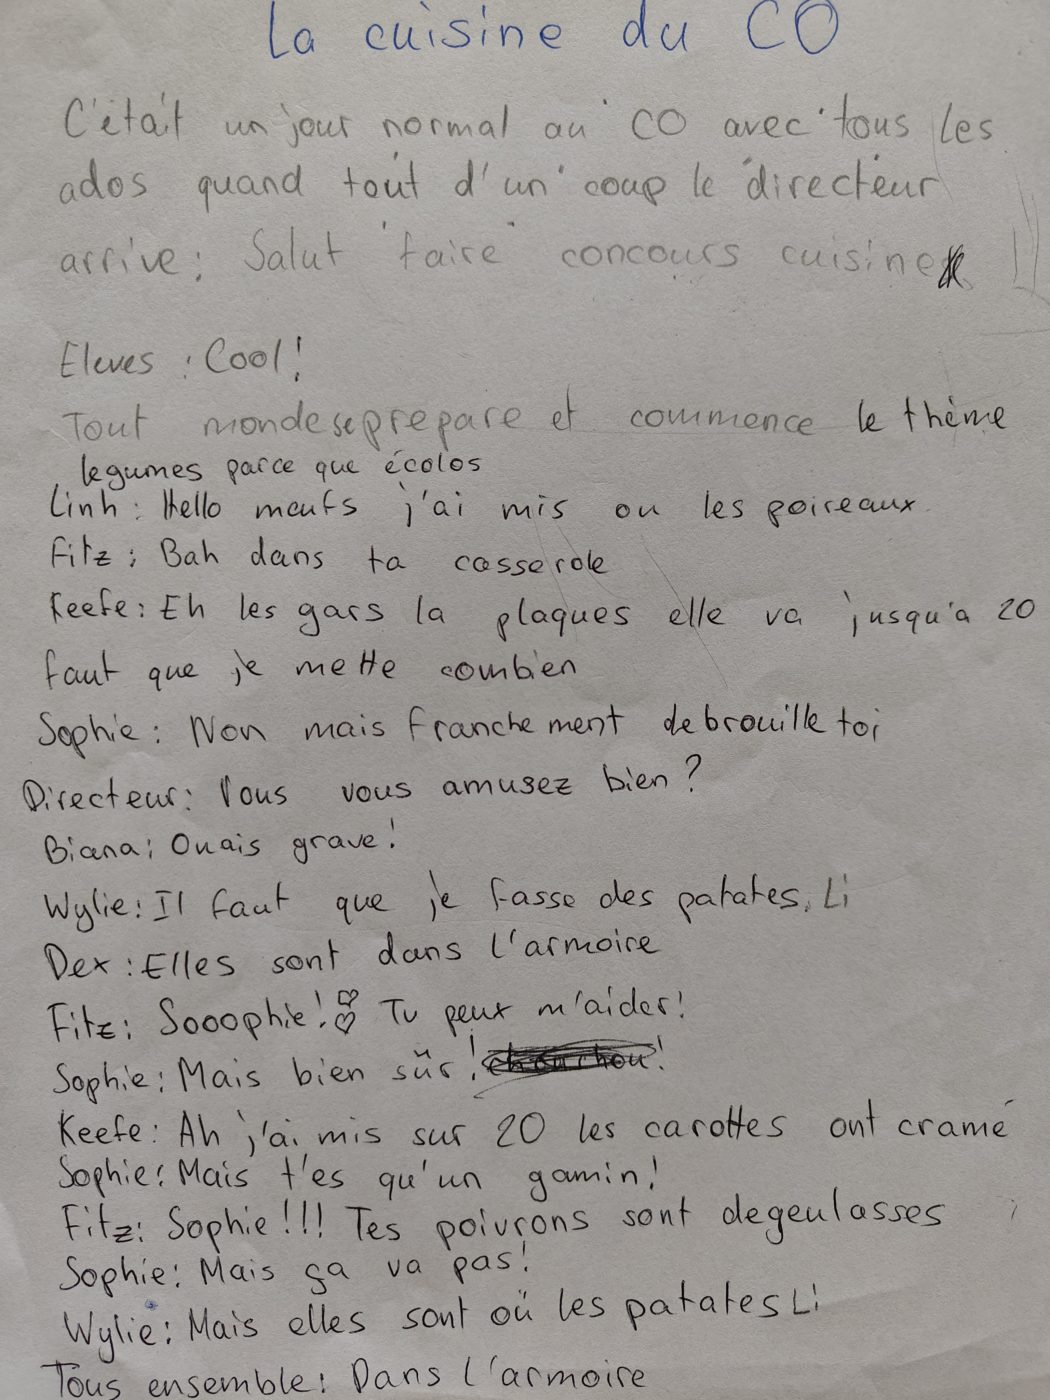 La cuisine du CO
C'était un jour normal au CO avec tous les
ados quand tout d'un coup le directeur
arrive : Salut faire concours cuisine
Eleves : Cool !
Tout monde se prepare et commence le thème
legumes parce que écolos
Linh : Hello meufs j'ai mis ou les poireaux
Fitz : Bah dans ta casserole
Keefe : Eh les gars la plaques elle va jusqu'a 20
faut que je mette combien
Sophie : Non mais franchement debrouille toi
Directeur : Vous vous amusez bien ?
Biana : Ouais grave !
Wylie : Il faut que je fasse des patates, Li
Dex : Elles sont dans l'armoire
Fitz : Sooophie ! ♡♡ Tu peux m'aider !
Sophie : Mais bien sûr ! !
Keefe : Ah j'ai mis sur 20 les carottes ont cramé
Sophie : Mais t'es qu'un gamin !
Fitz : Sophie !!! Tes poivrons sont degeulasses
Sophie : Mais ça va pas !
Wylie : Mais elles sont où les patates Li
Tous ensemble : Dans l'armoire